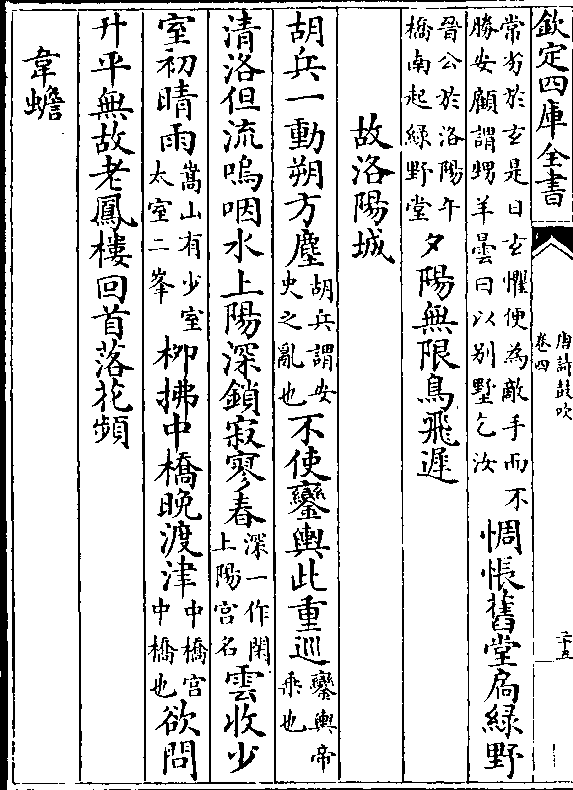 欽定四庫全書
唐詩鼓吹
卷四
二十五
常劣於玄是日玄懼便為敵手而不
勝安顧謂甥羊曇曰以别墅乞汝
惆悵舊堂扃緑野
晉公於洛陽午
橋南起緑野堂
夕陽無限鳥飛遲
故洛陽城
胡兵一動朔方塵
胡兵謂安
史之亂也
不使鑾輿此重巡
鑾輿帝
乘也
清洛但流嗚咽水上陽深鎖寂寥春
深一作閑
上陽宫名
雲收少
室初晴雨
嵩山有少室
太室二峯
柳拂中橋晚渡津
中橋宫
中橋也
欲問
升平無故老鳳樓回首落花頻
韋蟾